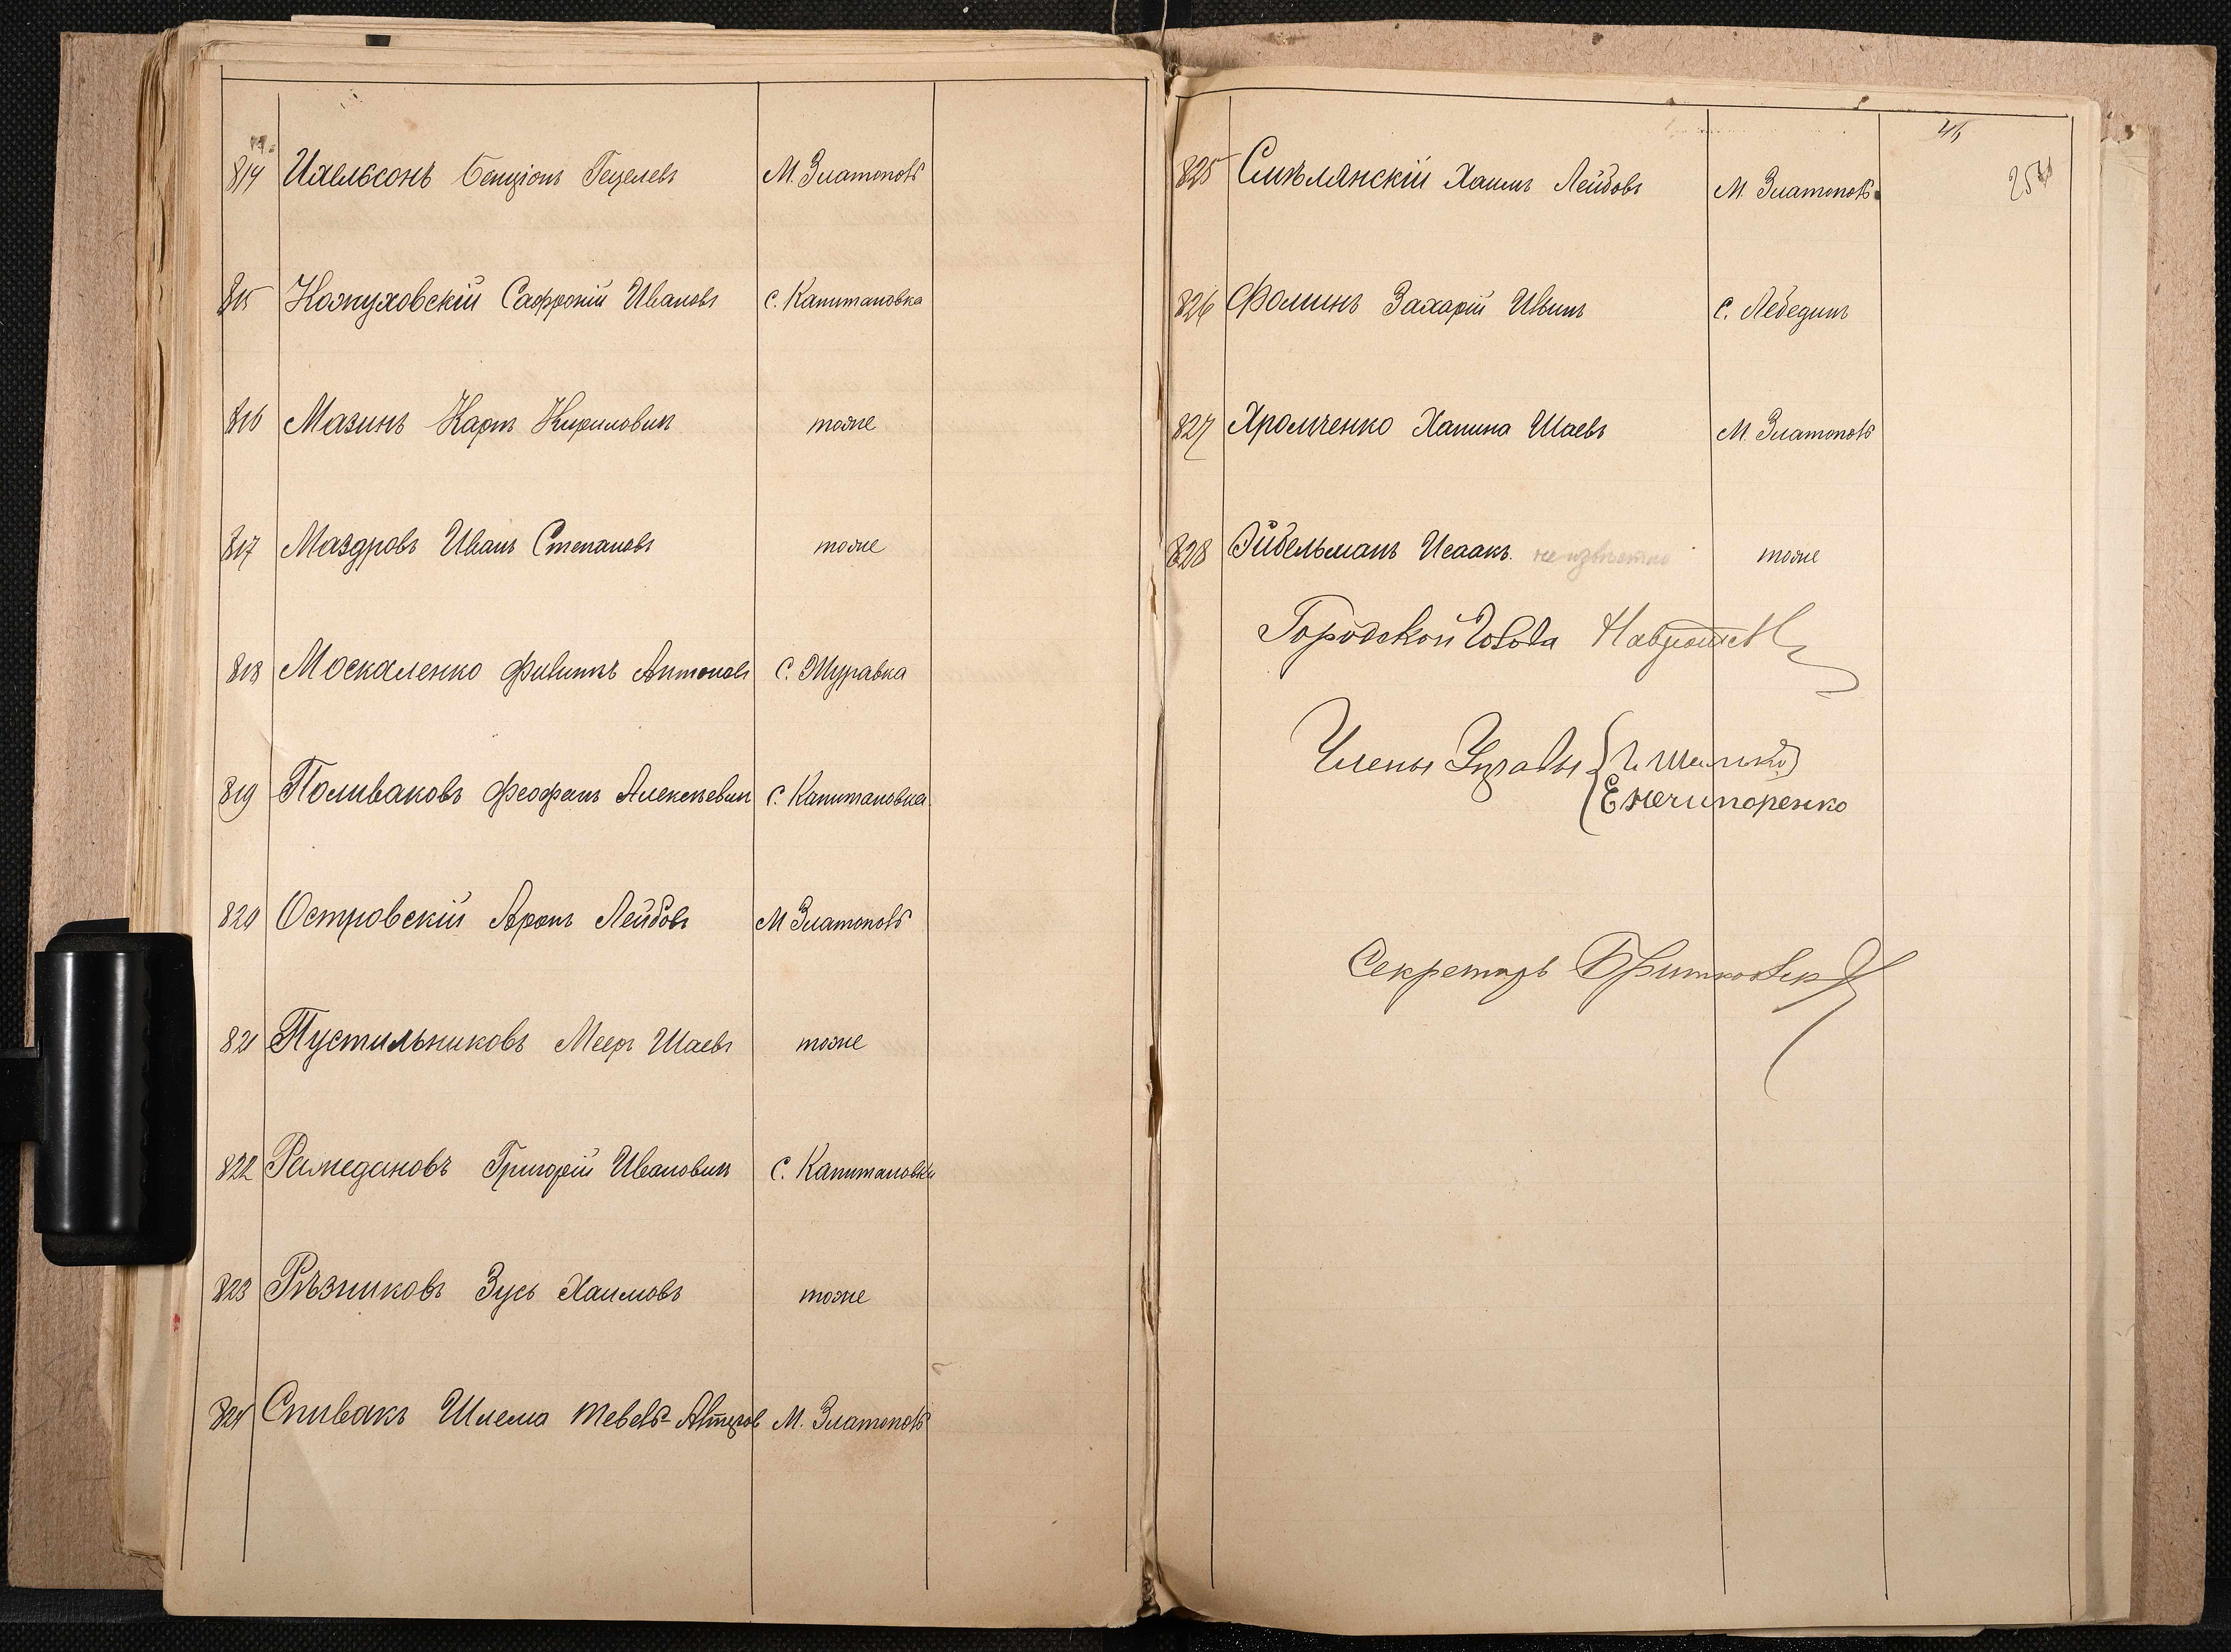 814 Ихельсонъ Бенціонъ Гецелевъ М. Златополь
815 Кожуховскій Сафроній Ивановъ С. Капитановка
816 Мазинъ Карпъ Кириловичъ тоже
817 Маздровъ Иванъ Степановъ тоже
818 Москаленко Филипъ Антоновъ С. Журавка
819 Поливановъ Феофанъ Алексѣевичъ С. Капитановка
820 Островскій Аронъ Лейбовъ М Златополь
821 Пустильниковъ Мееръ Шаевъ тоже
822 Рамедановъ Григорій Ивановичъ С. Капитановка
823 Рѣзниковъ Зусь Хаимовъ тоже
824 Спивакъ Шлема Тевель- М. Златополь
46
825 Смѣлянскій Хаимъ Лейбовъ М. Златополь
826 Фоминъ Захарій Ильичъ С. Лебединъ
827 Хромченко Ханина Шаевъ М. Златополь
828 Эйдельманъ Исаакъ. неизвѣстно тоже
Городской Голова
Члены Управы
Е Нечипоренко
Секретарь